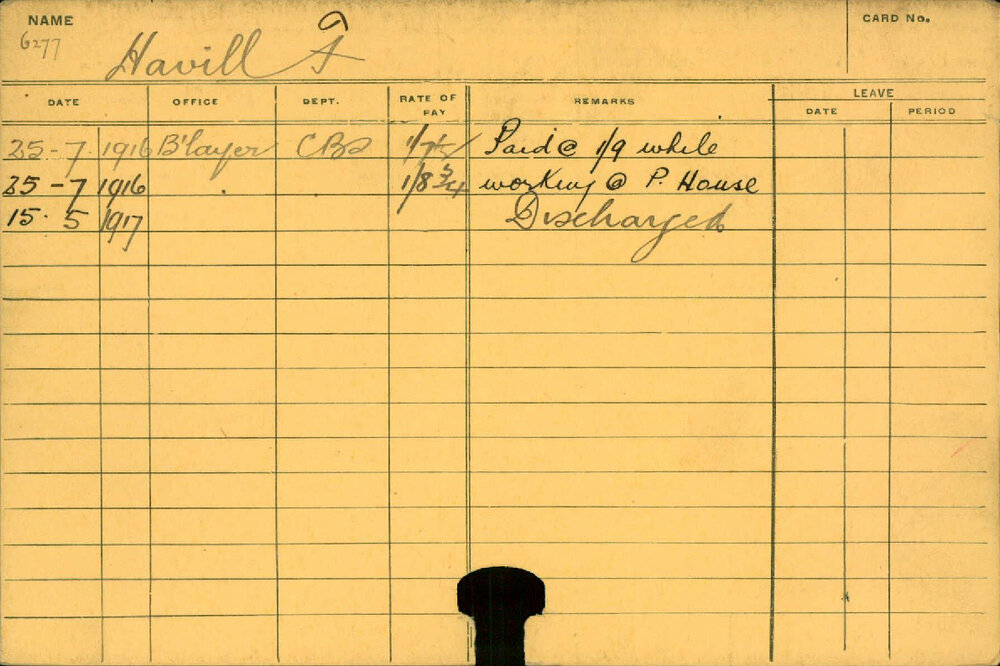 NAME
CARD No.
6277
Havill F
DATE OFFICE DEPT. RATE OF PAY REMARKS LEAVE
DATE PERIOD
25-7 1916 B'layer Paid @ 1/9 while
25-7 1916 1/8 3/4 working @ P. House
15. 5 1917 Discharged